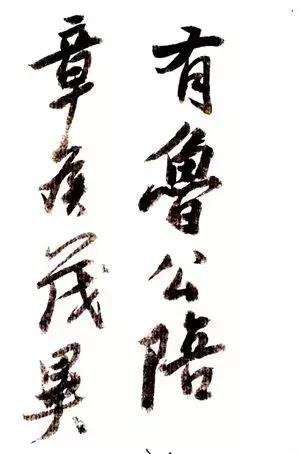 有魯公陪
章侯茂異